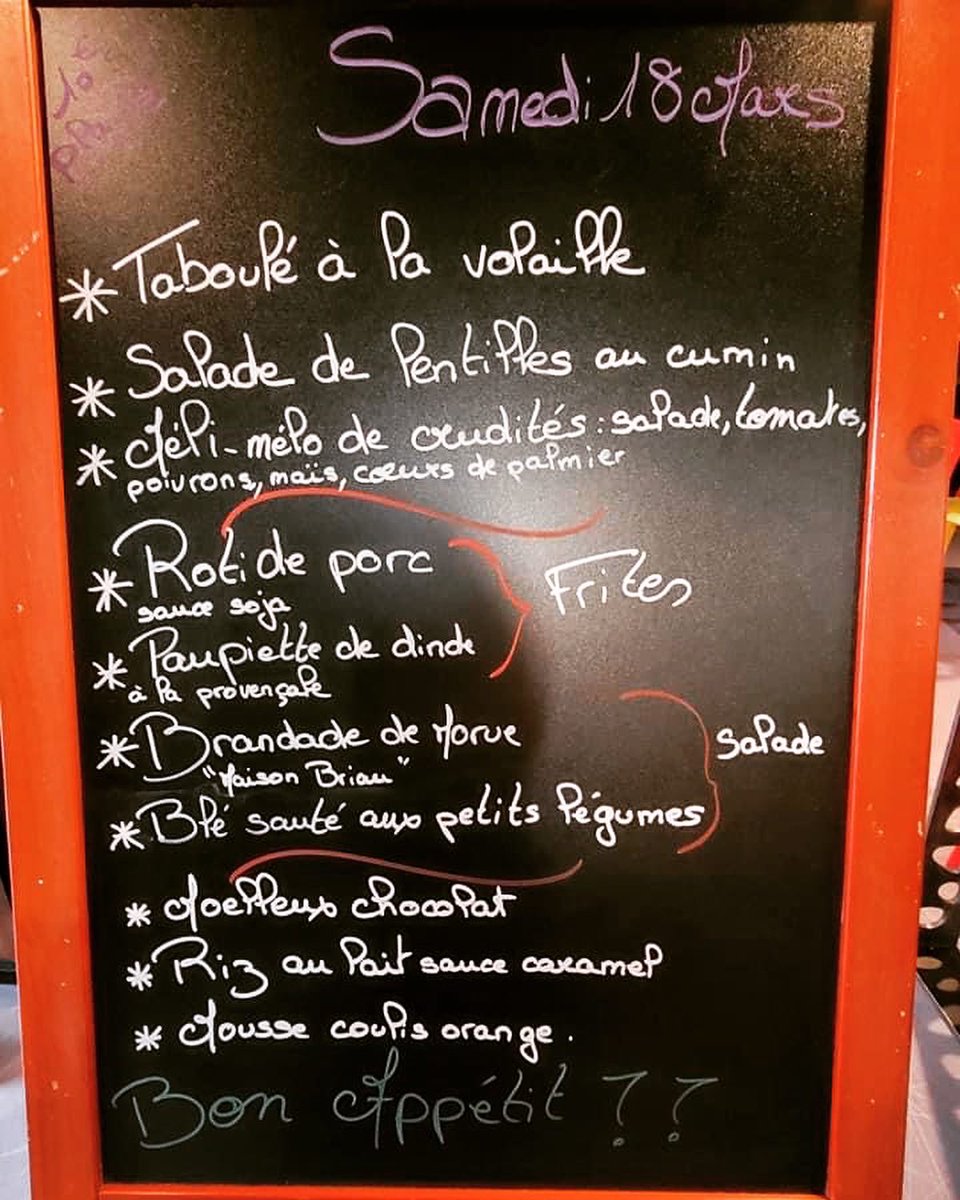 Samedi 18 Mars
* Taboulé à la volaille
* Salade de lentilles au cumin
* Méli-mélo de crudités : salade, tomates,
poivrons, maïs, cœurs de palmier
* Roti de porc
sauce soja
Frites
* Paupiette de dinde
à la provençale
* Brandade de Morue
"Maison Briau"
salade
* Blé sauté aux petits légumes
* Moelleux chocolat
* Riz au lait sauce caramel
* Mousse coulis orange.
Bon Appétit ? ?